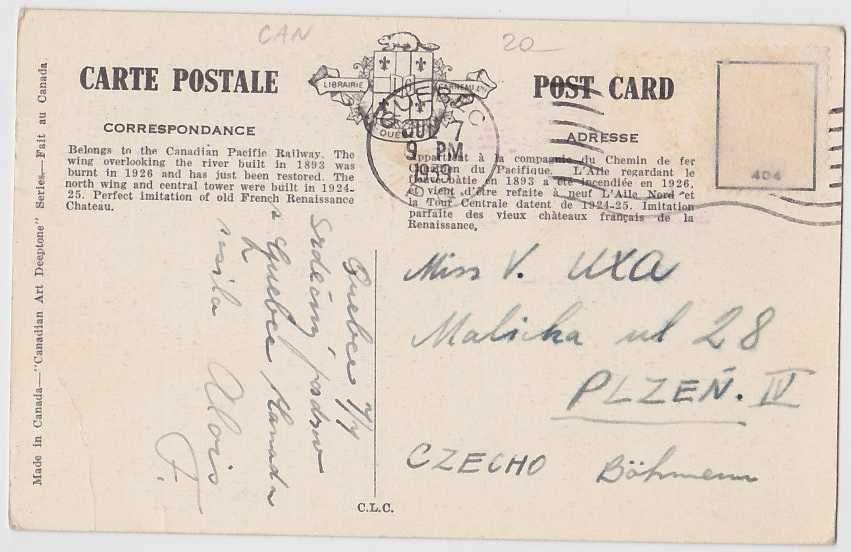 CAN
20
CARTE POSTALE
POST CARD
LIBRAIRIE
CORRESPONDANCE
ADRESSE
Belongs to the Canadian Pacific Railway. The
wing overlooking the river built in 1893 was
burnt in 1926 and has just been restored. The
north wing and central tower were built in 1924-
25. Perfect imitation of old French Renaissance
Chateau.
QUEBEC
7
9 PM
1939
Appartient à la compagnie du Chemin de fer
du Pacifique. L'Aile regardant le
bâtie en 1893 a été incendiée en 1926,
et vient d'être refaite à neuf L'Aile Nord et
la Tour Centrale datent de 1924-25. Imitation
parfaite des vieux châteaux français de la
Renaissance.
404
Quebec 7/7
Srdečný pozdrav
z Quebec Kanada
Alois
F.
Miss V. UXA
Malicka ul 28
PLZEŇ. IV
CZECHO Böhmen
C.L.C.
Made in Canada—"Canadian Art Deeptone" Series—Fait au Canada.